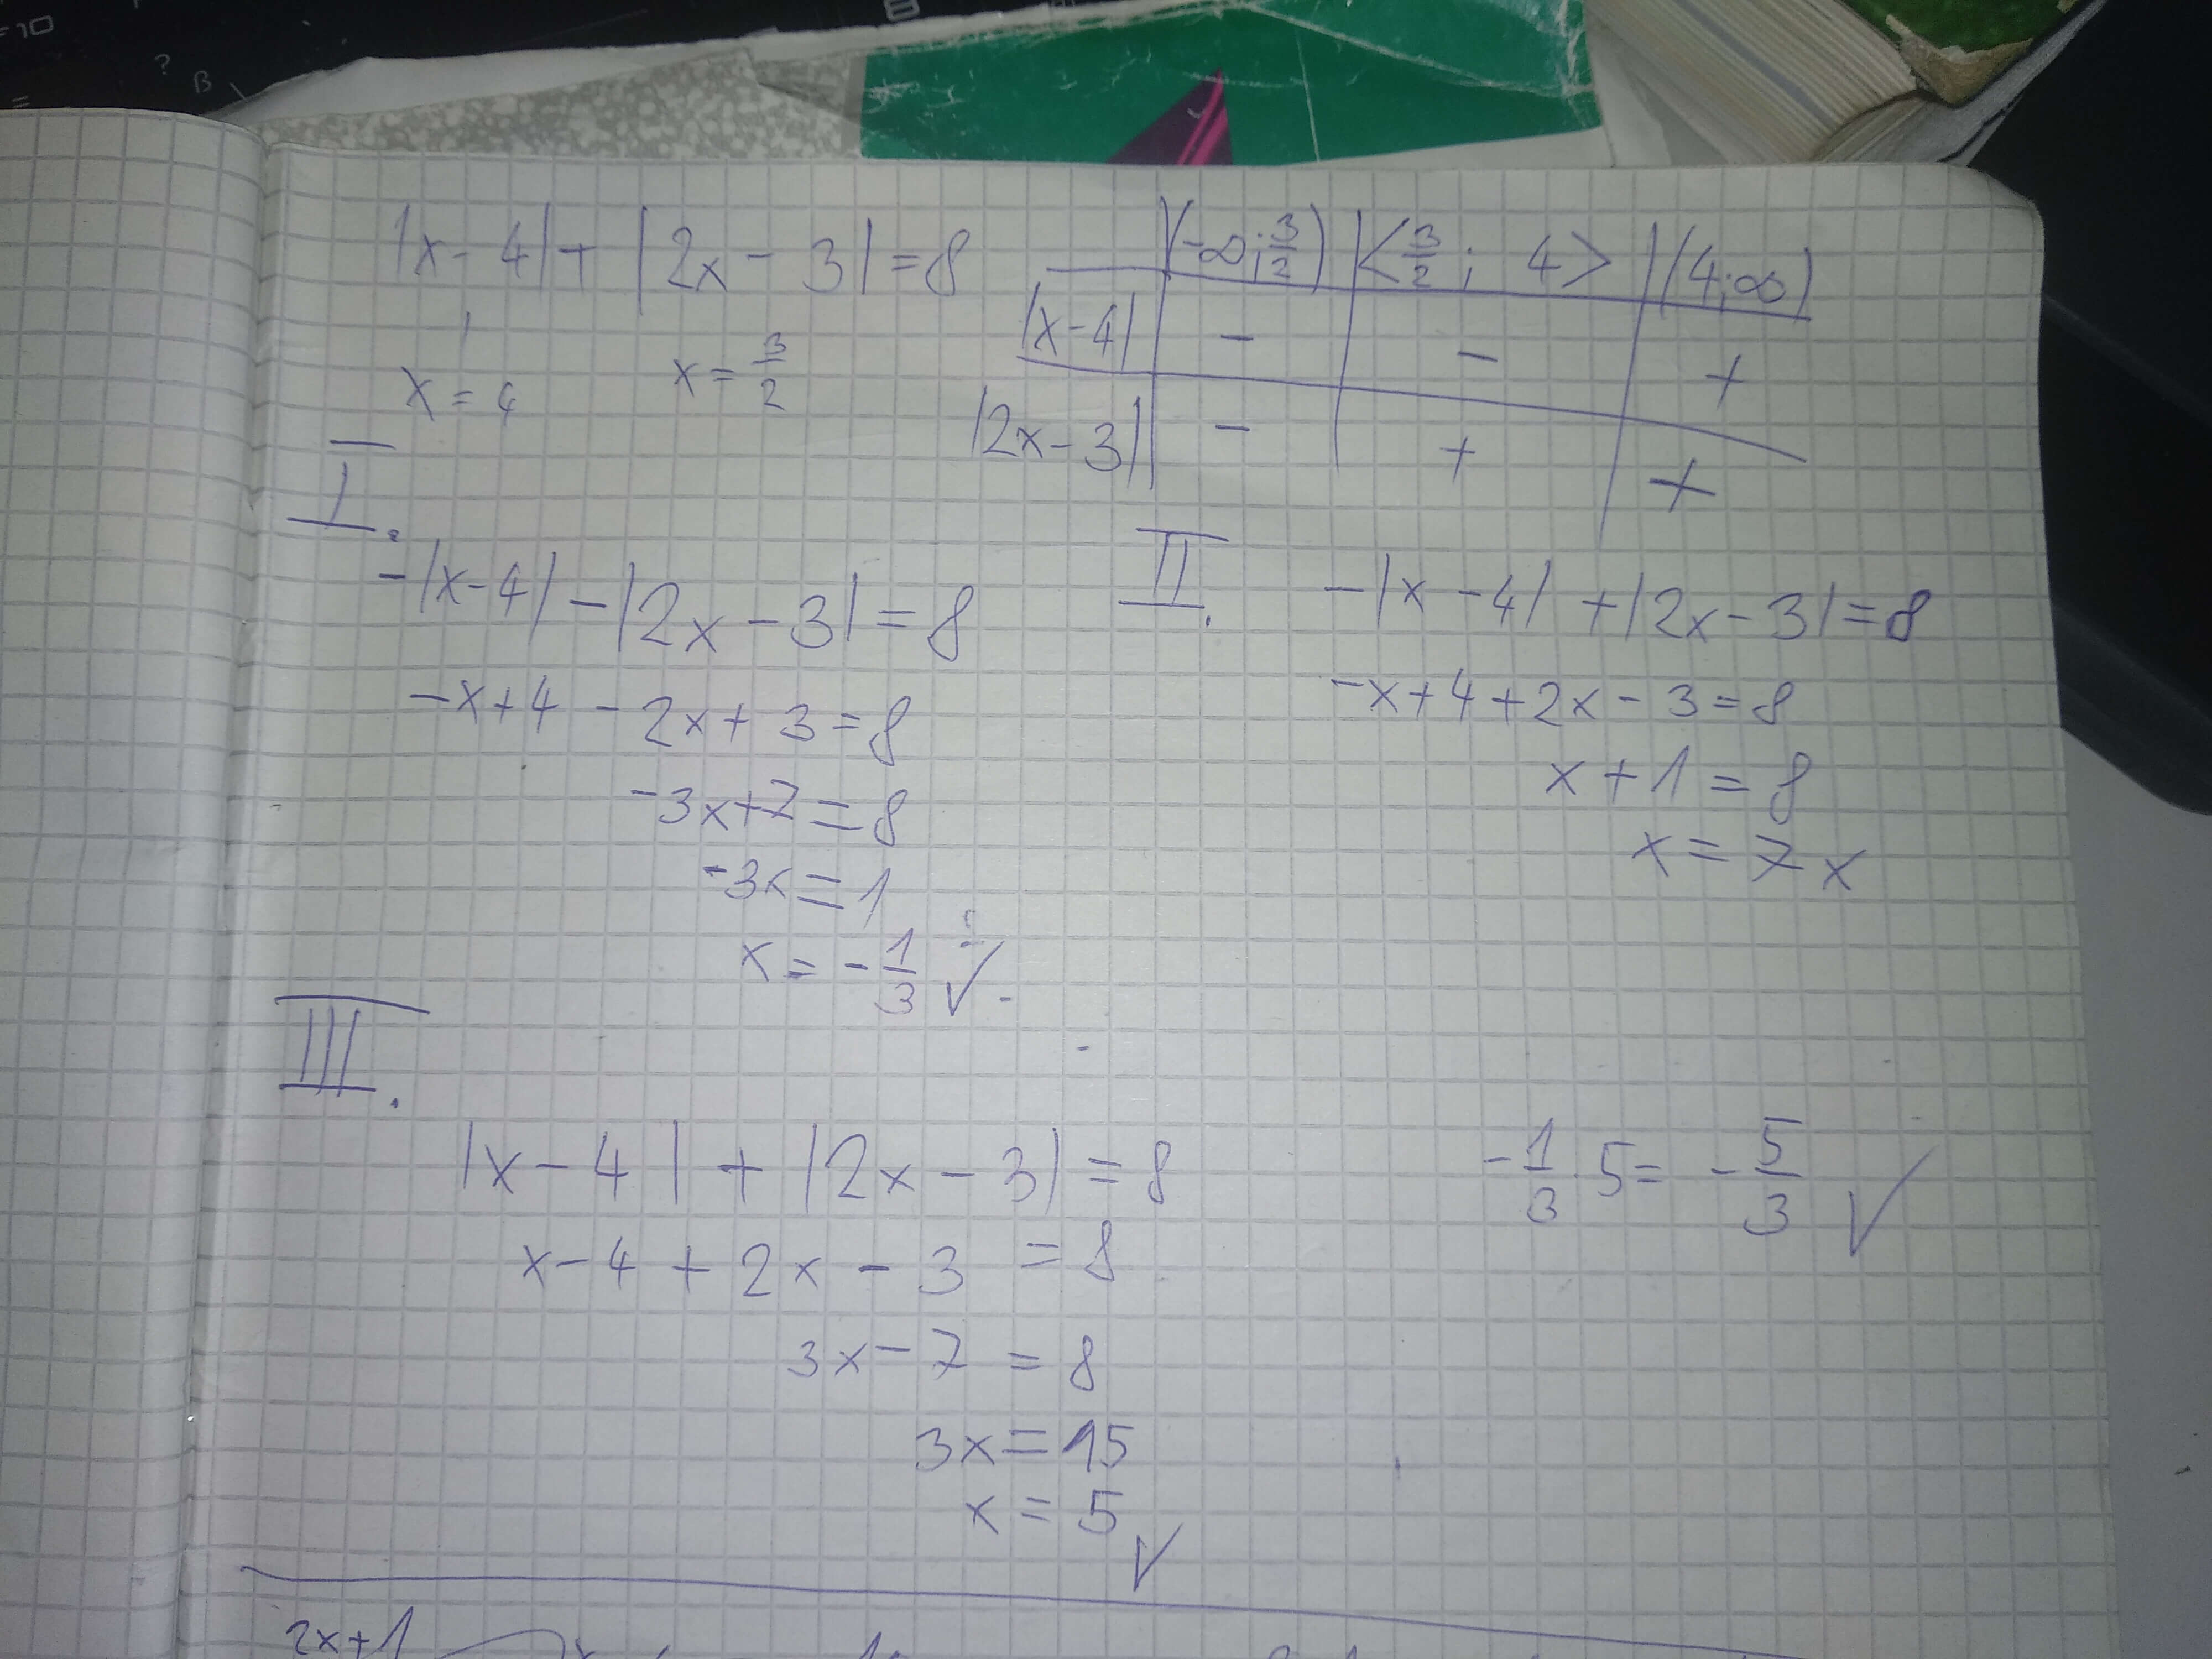 =10
B
?
ß
=
|x-4|+|2x-3|=8
x=4 x=3/2
(-∞;3/2) <3/2; 4> (4;∞)
|x-4| - - +
|2x-3| - + +
I.
-|x-4|-|2x-3|=8
-x+4-2x+3=8
-3x+7=8
-3x=1
x=-1/3 ✓
II.
-|x-4|+|2x-3|=8
-x+4+2x-3=8
x+1=8
x=7 x
III.
|x-4|+|2x-3|=8
x-4+2x-3=8
3x-7=8
3x=15
x=5 ✓
-1/3·5=-5/3 ✓
2x+1